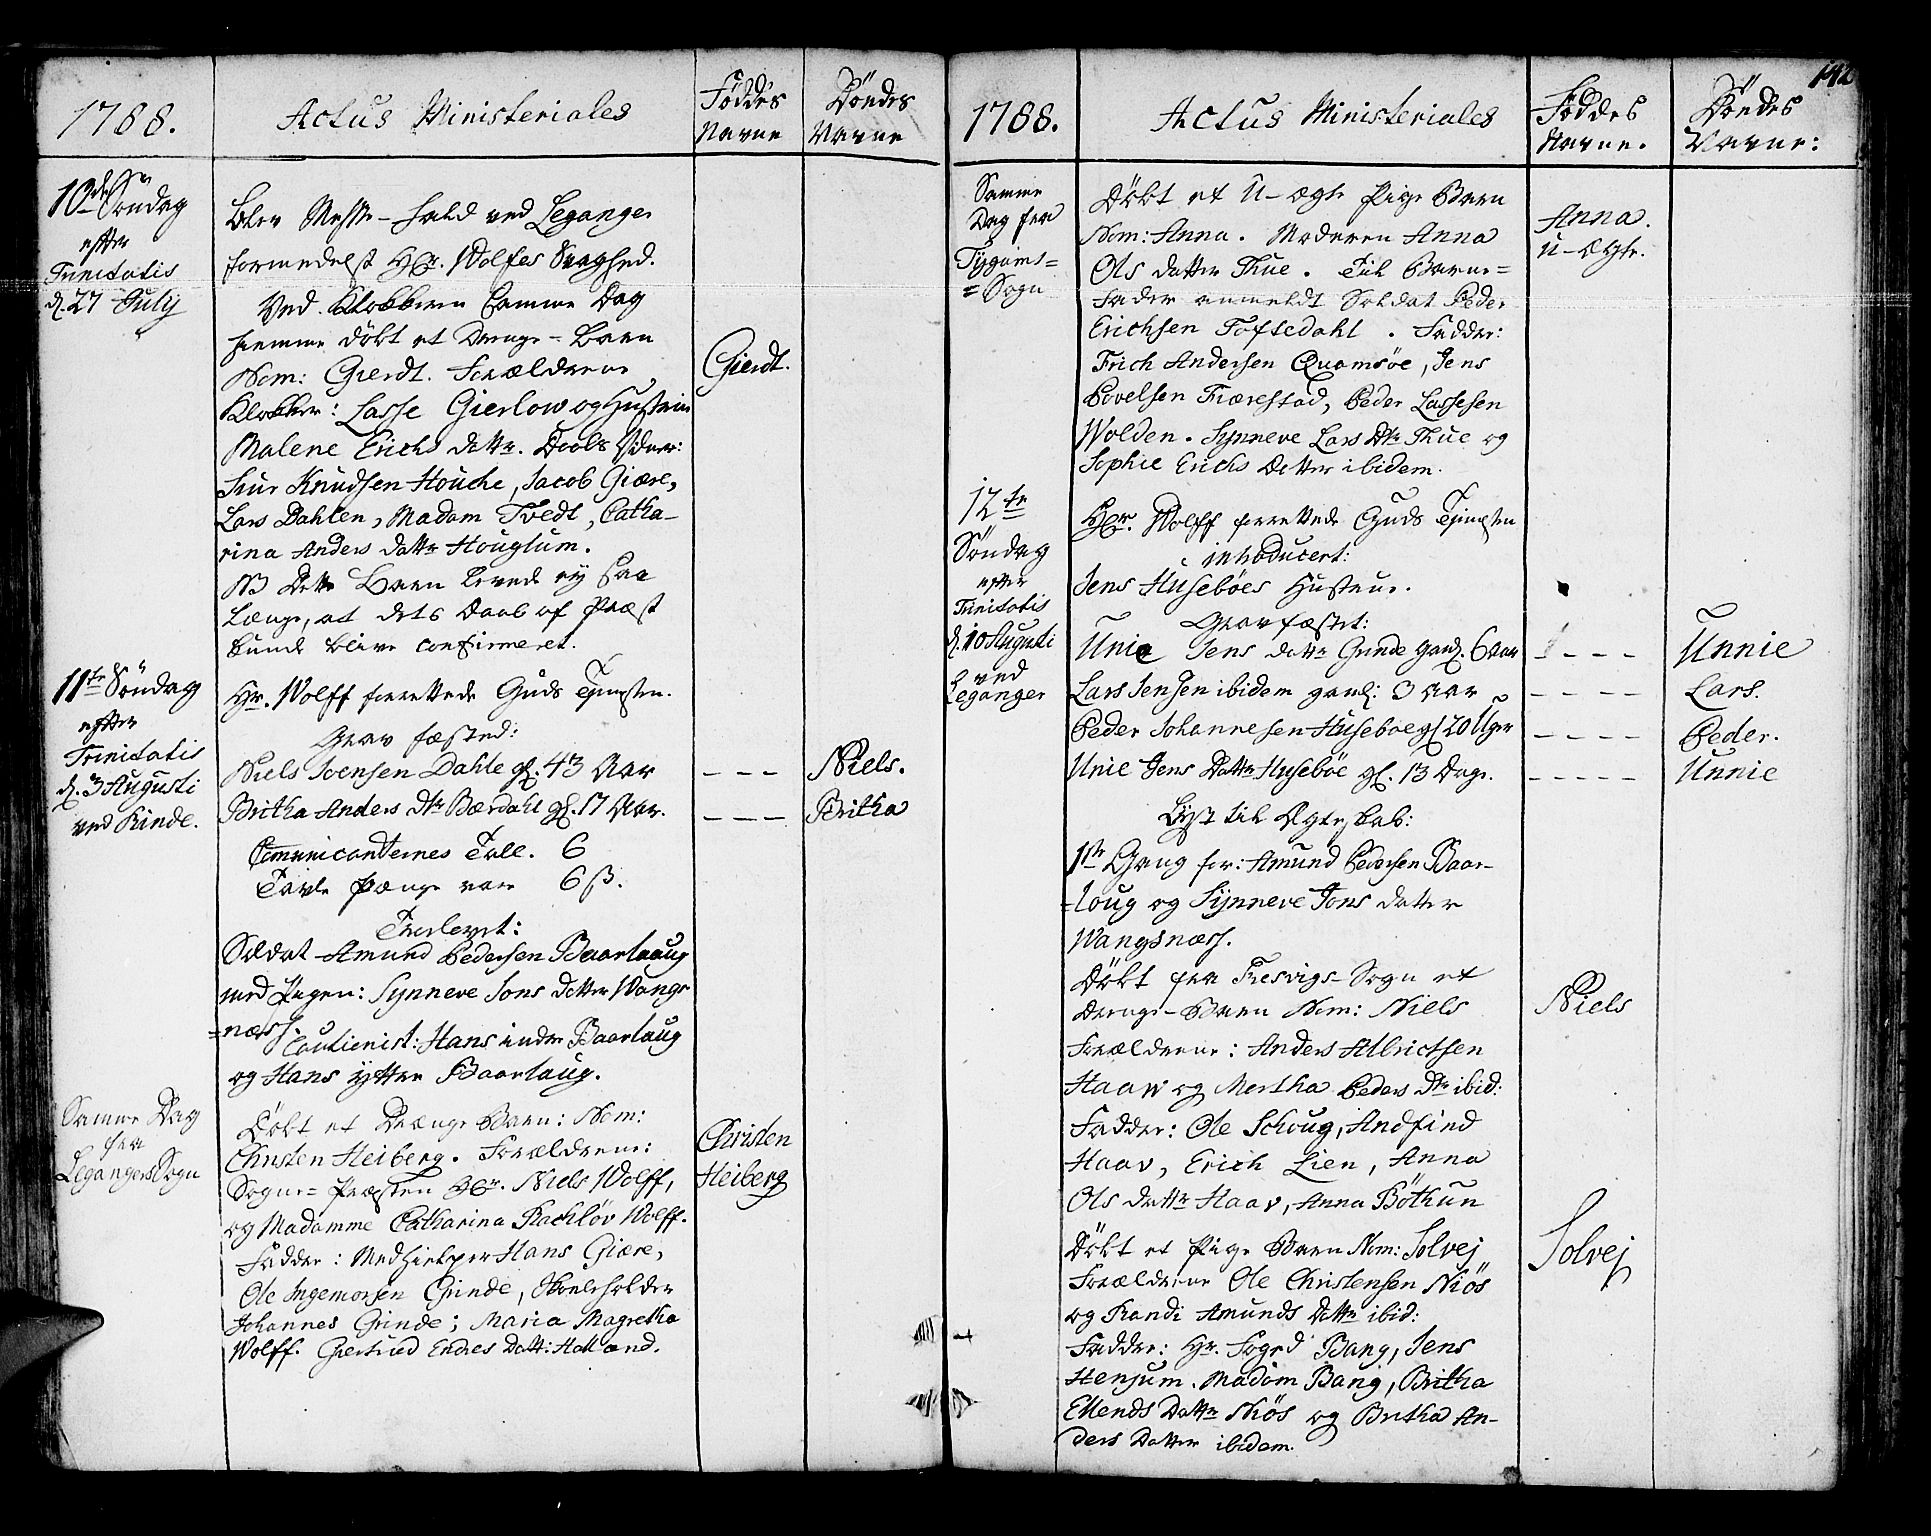 1788.
Actus Ministeriales
Föddes
Navne
Döndes
Navne
10de Söndag
efter
Trinitatis
d. 27 July
Blev Messe-fald ved Leganger
formedelst Hr. Wolfes Svaghed.
Ved Klokkeren samme Dag
hiemme döbt et Drenge-Barn
Nom: Gierdt. Forældrene
Klokker: Lasse Gierlow og Hustrue
Malene Erichs Datter. Daabs Vidner:
Siur Knudsen Houche, Jacob Giære,
Lars Dahlen, Madam Tvedt, Catha-
rina Anders Datter Houglum.
NB Dette Barn levede ey saa
længe, at dets Daab af Præst
kunde blive confirmeret.
Gierdt.
11te Söndag
efter
Trinitatis
d. 3 Augusti
ved Rinde.
Hr. Wolff forrettede Guds Tienesten.
Grav fæsted:
Niels Ivensen Dahle gl. 43 Aar
Britha Anders Dtr Bærdahl gl. 17 Aar.
Communicanternes Tall. 6
Tavle penge vare 6 ß.
Trolovet:
Soldat Amund Pedersen Baarlaug
med Pigen: Synneve Jons Datter Wangs-
=næss.
Cautionist: Hans indre Baarlaug
og Hans yttre Baarlaug.
--- Niels.
--- Britha
Samme Dag
fra
Legangers Sogn
Döbt et Drænge Barn: Nom:
Christen Heiberg. Forældrene:
Sogne=Præsten Hr. Niels Wolff,
og Madamme Catharina Rachlöv Wolff.
Faddere: Medhielper Hans Giære,
Ole Ingemorsen Grinde, Skoeleholder
Johannes Grinde; Maria Magretha
Wolff. Giertrud Endres Datt: Hatland.
Christen
Heiberg
142
1788.
Actus Ministeriales
Föddes
Navne.
Döndes
Navne:
Samme
Dag fra
Tygums=
=Sogn
Döbt et U-ægte Pige Barn
Nom: Anna. Moderen Anna
Ols datter Thue. Til Barne=
Fader anmeldt Soldat Peder
Erichsen Toftedahl. Fadder:
Erich Andersen Quamsöe, Jens
Povelsen Tiærestad, Peder Lassesen
Wolden. Synneve Lars Dtr Thue og
Sophie Erichs Datter ibidem.
Anna.
U-Ægte.
12te
Söndag
efter
Trinitatis
d. 10 Augusti
ved
Leganger
Hr. Wolff forrettede Guds Tienesten
introducert:
Jens Huseböes Hustrue.
Gravfæstet:
Unie Jens datter Grinde gaml. 6 Aar
Lars Jensen ibidem gaml: 3 Aar
Peder Johannesen Huseboe gl 20 Uger
Unie Jens Datter Huseböe gl. 13 Dage.
---- Unnie
---- Lars.
---- Peder.
----- Unnie
Lyst til Ægteskab:
1ste Gang for: Amund Pedersen Baar-
=loug og Synneve Jons datter
Wangsnæss.
Döbt fra Fresvigs-Sogn et
Drenge-Barn Nom: Niels
Forældrene: Anders Albrictsen
Haaw og Mertha Peders Dtr ibid:
Fadder: Ole Schoug, Andfind
Haav, Erich Lien, Anna
Ols datter Haav, Anna Böthun
Niels
Döbt et Pige Barn Nom: Solvej
Forældrene Ole Christensen Niös
og Randi Amunds Datter ibid:
Fadder: Hr. Foged Bang, Jens
Henjum. Madam Bang, Britha
Ellends Datter Niös og Britha An-
ders Datter ibidem.
Solvej